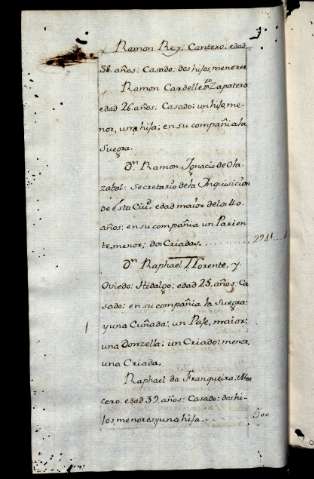 Ramon Rey, Cantero, edad
38 años: Casado: dos hijos menores
Ramon Cardelle, Zapatero
edad 26 años: Casado: un hijo me-
nor, una hija; en su compañia la
Suegra.
Dn. Ramon Ignacio de Ola
zabal: Secretario de la Inquisicion
de esta Ciud. edad maior de los 40
años: en su compañia un Parien
te menor; dos Criadas
Dn. Raphael Llorente, y
Oviedo: Hidalgo: edad 25 años: Ca
sado: en su compañia la Suegra
y una Cuñada: un Paje, maior:
una Donzella: un Criado menor,
una Criada.
Raphael da Franqueira,
cero: edad 39 años: Casado: dos hi-
jos menores y una hija